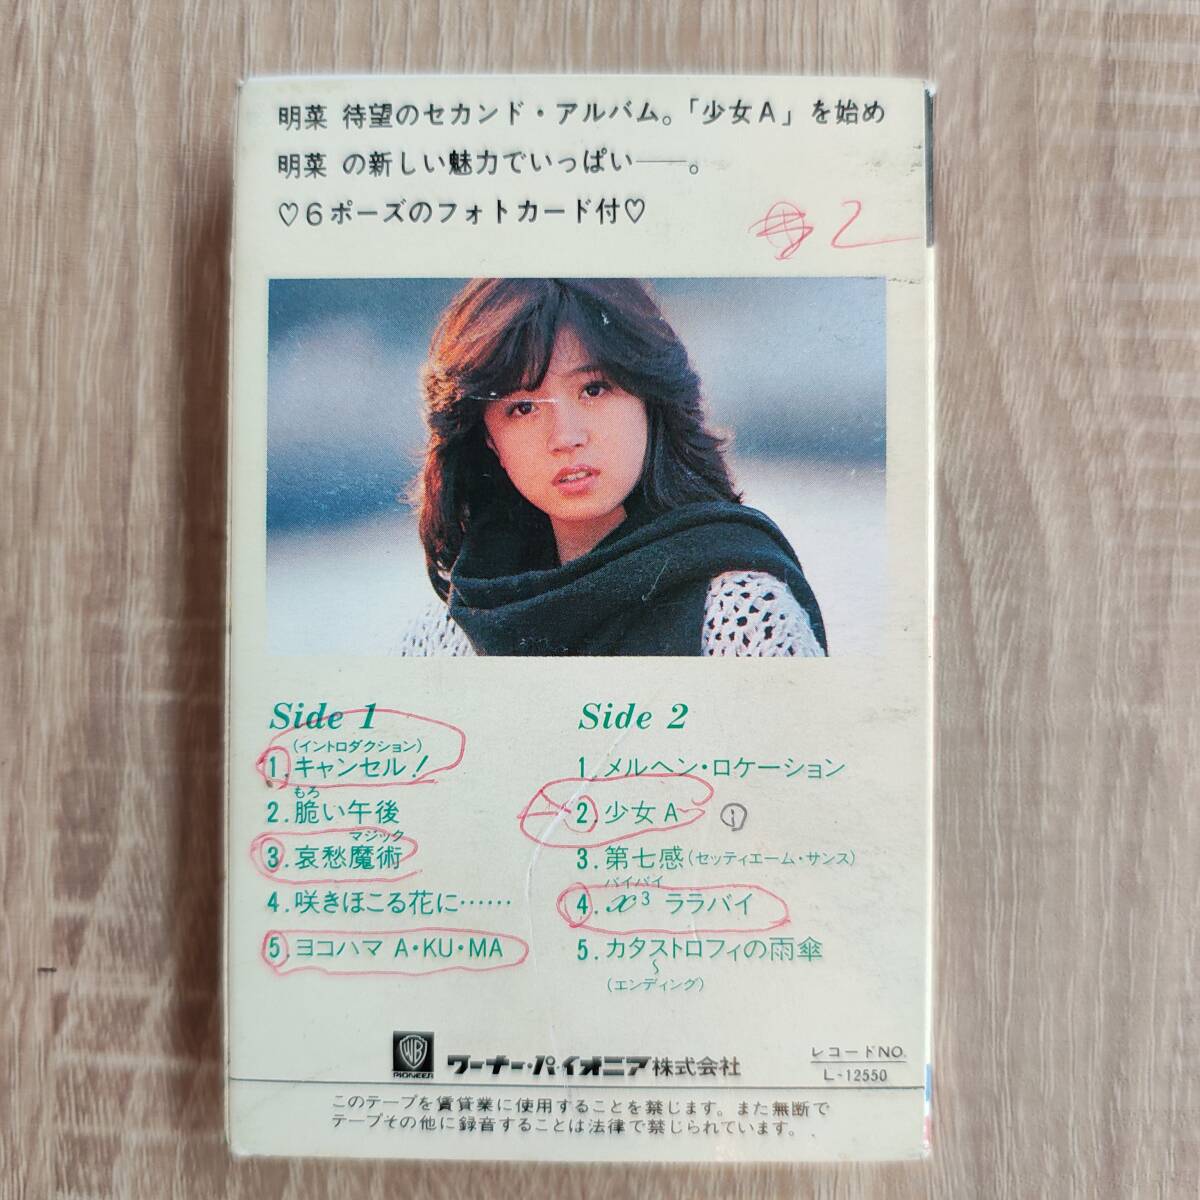 明菜 待望のセカンド・アルバム。「少女A」を始め
明菜 の新しい魅力でいっぱい――。
♡6ポーズのフォトカード付♡
2
Side 1
(イントロダクション)
1. キャンセル!
もろ
2. 脆い午後
マジック
3. 哀愁魔術
4. 咲きほこる花に……
5. ヨコハマ A・KU・MA
Side 2
1. メルヘン・ロケーション
2. 少女A 1
3. 第七感(セッティエーム・サンス)
バイバイ
4. x³ ララバイ
5. カタストロフィの雨傘
〜
(エンディング)
WB
PIONEER
ワーナー・パイオニア株式会社
レコードNO.
L-12550
このテープを賃貸業に使用することを禁じます。また無断で
テープその他に録音することは法律で禁じられています。